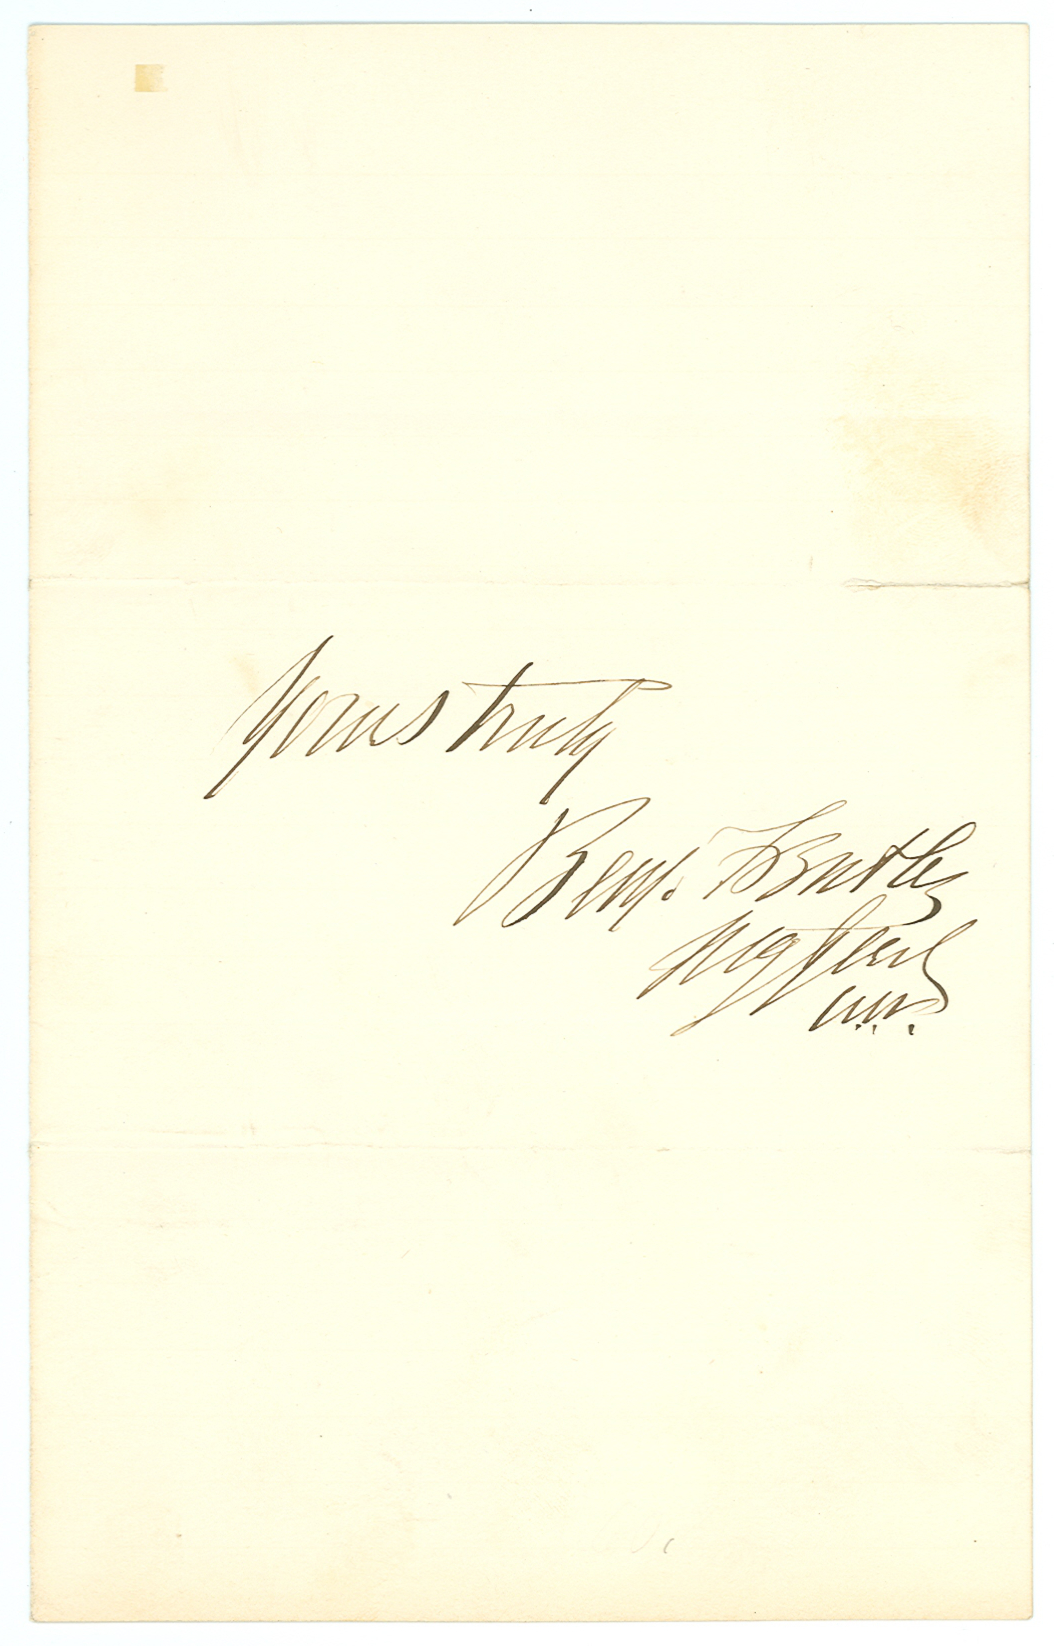 Yours truly
Benj. F Butler
Maj Genl
U.S.